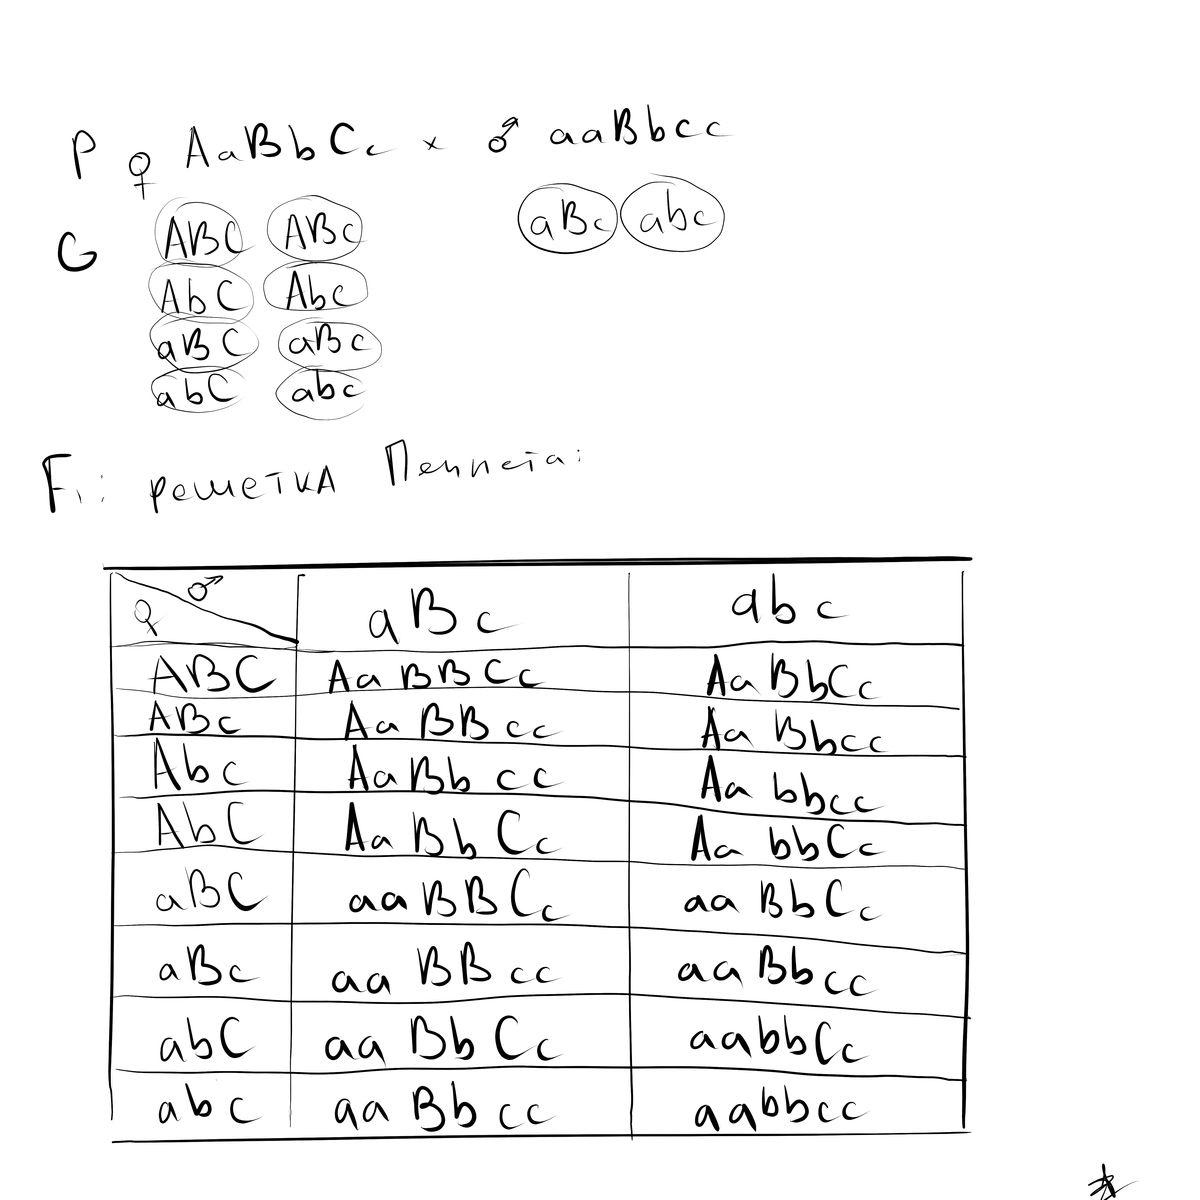 P ♀ AaBbCc × ♂ aaBbcc
G ABC ABc aBc abc
AbC Abc
aBC aBc
abC abc
F₁: решетка Пеннета:
♀ ♂ aBc abc
ABC AaBBCc AaBbCc
ABc AaBBcc AaBbcc
Abc AaBbcc Aabbcc
AbC AaBbCc AabbCc
aBC aaBBCc aaBbCc
aBc aaBBcc aaBbcc
abC aaBbCc aabbCc
abc aaBbcc aabbcc